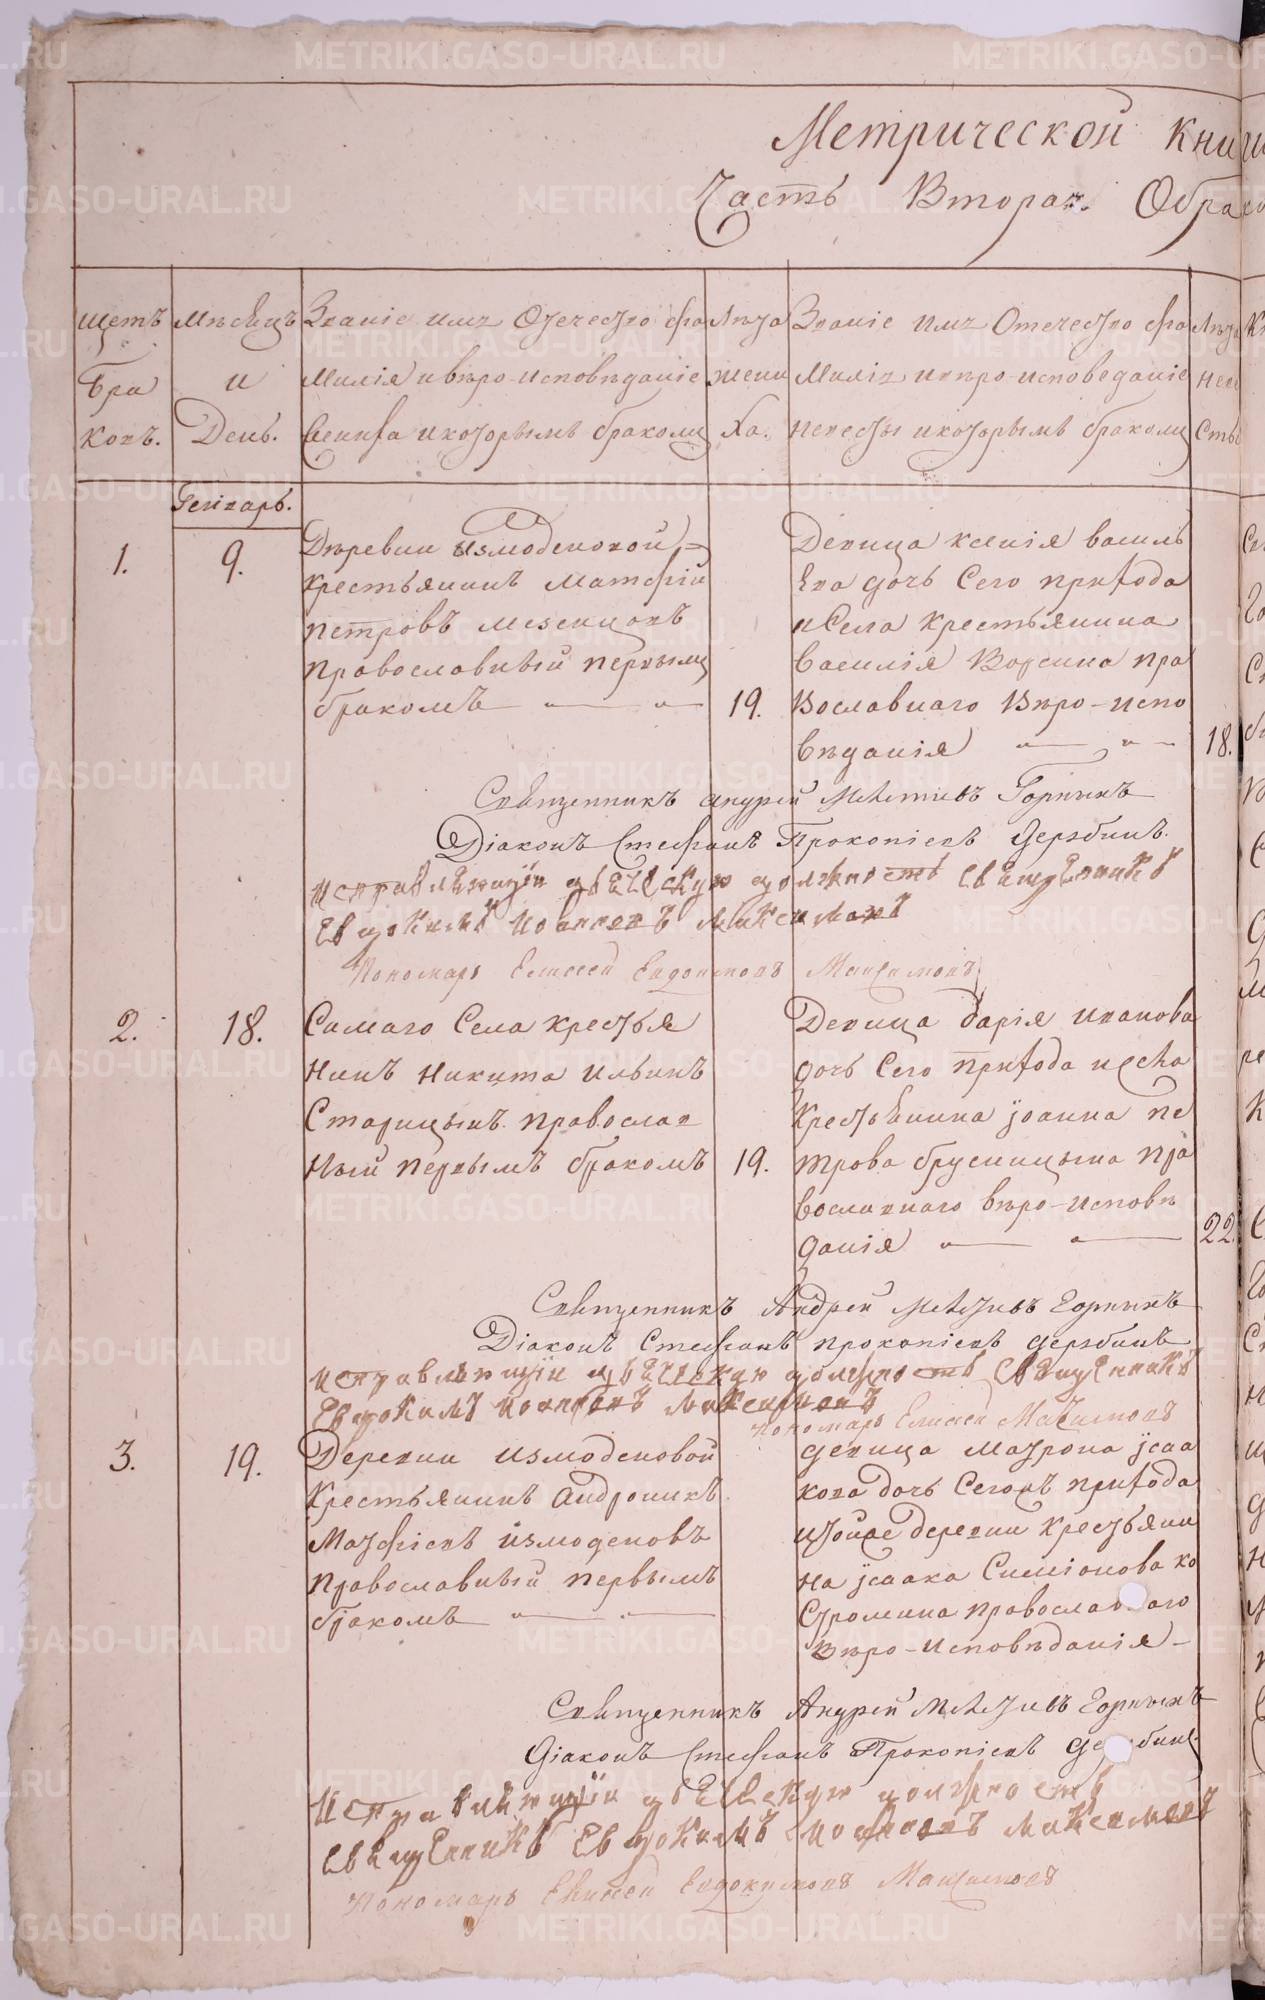 Метрической книги
Часть Вторая. О бра
щетъ
Бра
ковъ.
Мѣсяцъ
и
День.
Званіе имя Отечество фа
милія и вѣро-исповѣданіе
жениха и которымъ бракомъ
Лѣта
жени
ха.
Званіе имя Отечество фа
милія и вѣро-исповеданіе
невесты и которымъ бракомъ
Лѣта
неве
сты
Генварь.
1.
9.
Дѣревни измоденовой
крестьянинъ матфѣй
петровъ мезенцовъ
православный первымъ
бракомъ
19.
Девица ксенія василь
ева дочь Сего прихода
и Села крестьянина
василія пра
вославнаго вѣро-испо
вѣданія
18.
Священникъ андрей Горныхъ
Діаконъ Стефанъ Прокопіевъ Дерябинъ.
исправляющій дьяческую должность священникъ
Евдокимъ иоанновъ Максимовъ
Пономарь Елисей Евдокимовъ Максимовъ
2.
18.
Самаго Села крестья
нинъ никита ильинъ
Старицынъ православ
ный первымъ бракомъ
19.
Девица дарія иванова
дочь Сего прихода и села
крестьянина іоанна пе
трова брусницына пра
вославнаго вѣро-исповѣ
данія
22.
Священникъ Андрей Горныхъ
Діаконъ Стефанъ прокопіевъ дерябинъ
исправляющій дьяческую должность священникъ
Евдокимъ иоанновъ максимовъ
пономарь Елисей Максимовъ
3.
19.
Деревни измоденовой
крестьянинъ андроникъ
матфіевъ измоденовъ
православный первымъ
бракомъ
девица матрона ісаа
кова дочь Сегожъ прихода
и тойже деревни крестьяни
на ісаака Симіонова ко
стромина православнаго
вѣро-исповѣданія
Священникъ Андрей Горныхъ
Діаконъ Стефанъ Прокопіевъ Дерябинъ
исправляющій дьяческую должность
священникъ Евдокимъ иоанновъ максимовъ
Пономарь Елисей Евдокимовъ Максимовъ
METRIKI.GASO-URAL.RU